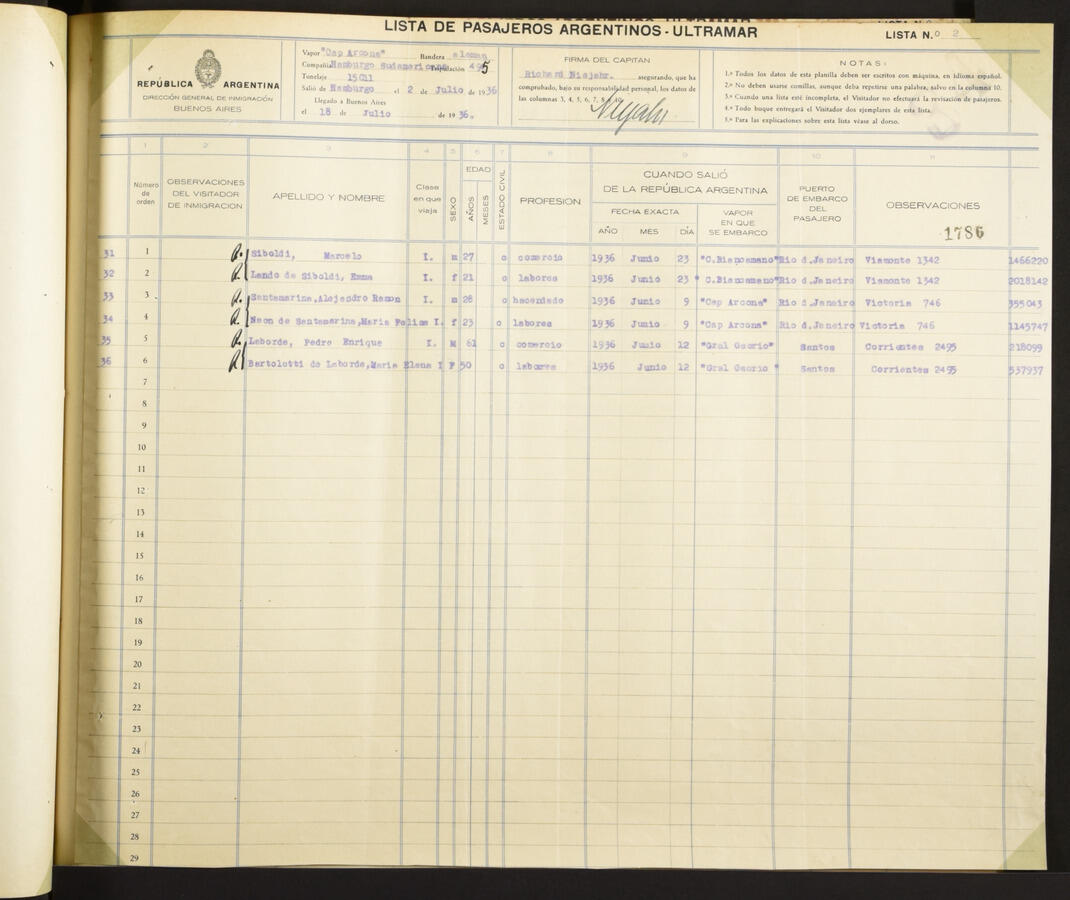 LISTA DE PASAJEROS ARGENTINOS - ULTRAMAR
LISTA N.o 2
REPÚBLICA ARGENTINA
DIRECCIÓN GENERAL DE INMIGRACIÓN
BUENOS AIRES
Vapor "Cap Arcona" Bandera aleman
Compañía Hamburgo Sudamericana Tripulación 495
Tonelaje 15011
Salió de Hamburgo el 2 de Julio de 1936
Llegado a Buenos Aires
el 18 de Julio de 1936.
FIRMA DEL CAPITAN
Richard Niejahr. asegurando, que ha
comprobado, bajo su responsabilidad personal, los datos de
las columnas 3, 4, 5, 6, 7, 8 y 10.
Niejahr
NOTAS:
1.ª Todos los datos de esta planilla deben ser escritos con máquina, en idioma español.
2.ª No deben usarse comillas, aunque deba repetirse una palabra, salvo en la columna 10.
3.ª Cuando una lista esté incompleta, el Visitador no efectuará la revisación de pasajeros.
4.ª Todo buque entregará el Visitador dos ejemplares de esta lista.
5.ª Para las explicaciones sobre esta lista véase al dorso.
1 2 3 4 5 6 7 8 9 10 11
Número de orden
OBSERVACIONES DEL VISITADOR DE INMIGRACION
APELLIDO Y NOMBRE
Clase en que viaja
SEXO
EDAD
AÑOS
MESES
ESTADO CIVIL
PROFESION
CUANDO SALIÓ DE LA REPÚBLICA ARGENTINA
FECHA EXACTA
AÑO MES DÍA
VAPOR EN QUE SE EMBARCO
PUERTO DE EMBARCO DEL PASAJERO
OBSERVACIONES
1786
31 1 Siboldi, Marcelo I. m 27 c comercio 1936 Junio 23 "C.Biancamano" Rio d.Janeiro Viamonte 1342 1466220
32 2 Lando de Siboldi, Emma I. f 21 c labores 1936 Junio 23 "C.Biancamano" Rio d.Janeiro Viamonte 1342 2018142
33 3 Santamarina,Alejandro Ramon I. m 28 c hacendado 1936 Junio 9 "Cap Arcona" Rio d.Janeiro Victoria 746 355043
34 4 Naon de Santamarina,Maria Felisa I. f 23 c labores 1936 Junio 9 "Cap Arcona" Rio d.Janeiro Victoria 746 1145747
35 5 Laborde, Pedro Enrique I. M 61 c comercio 1936 Junio 12 "Gral Osorio" Santos Corrientes 2495 218099
36 6 Bartolotti de Laborde,Maria Elena I F 50 c labores 1936 Junio 12 "Gral Osorio" Santos Corrientes 2495 537937
7
8
9
10
11
12
13
14
15
16
17
18
19
20
21
22
23
24
25
26
27
28
29